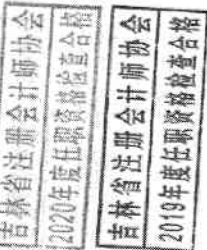 吉林省注册会计师协会
2020年度任职资格检查合格
吉林省注册会计师协会
2019年度任职资格检查合格